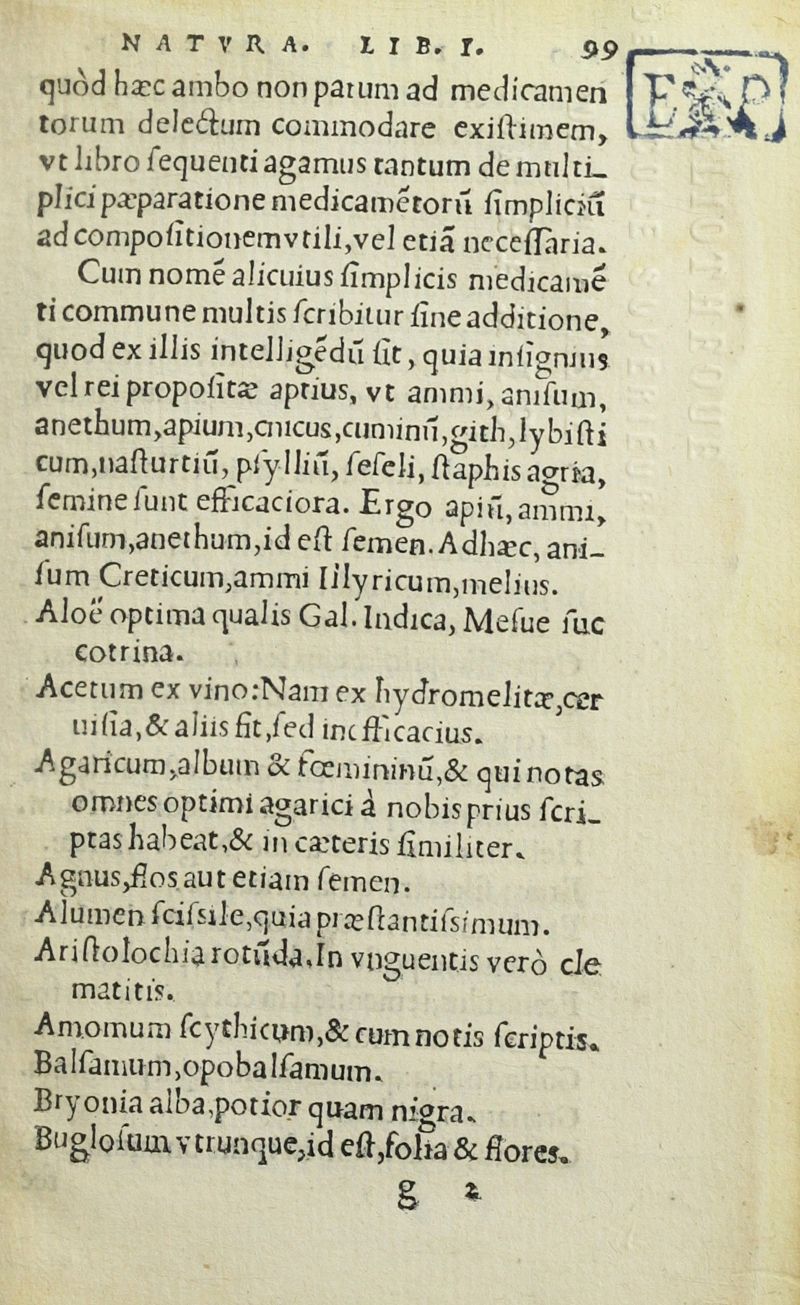 NATVRA. LIB. I. 99
E P
quòd hæc ambo non parum ad medicamen
torum delectum commodare existimem,
vt libro sequenti agamus tantum de multi-
plici pæparatione medicamẽtorũ simpliciũ
ad compositionem vtili, vel etiã necessaria.
Cum nomẽ alicuius simplicis medicamẽ
ti commune multis scribitur sine additione,
quod ex illis intelligẽdũ sit, quia insignius
vel rei propositæ aptius, vt ammi, anisum,
anethum, apium, cnicus, cuminũ, gith, lybisti
cum, nasturtiũ, psylliũ, seseli, staphis agria,
semine sunt efficaciora. Ergo apiũ, ammi,
anisum, anethum, id est semen. Ad hæc, ani-
sum Creticum, ammi Illyricum, melius.
Aloë optima qualis Gal. Indica, Mesue suc
cotrina.
Acetum ex vino: Nam ex hydromelitæ, cer
uisia, & aliis fit, sed inefficacius.
Agaricum, album & fœmininũ, & qui notas
omnes optimi agarici à nobis prius scri-
ptas habeat, & in cæteris similiter.
Agnus, flos aut etiam semen.
Alumen scissile, quia præstantissimum.
Aristolochia rotũda. In vnguentis verò cle
matitis.
Amomum scythicum, & cum notis scriptis.
Balsamum, opobalsamum.
Bryonia alba, potior quam nigra.
Buglosum vtrunque, id est, folia & flores.
g 2